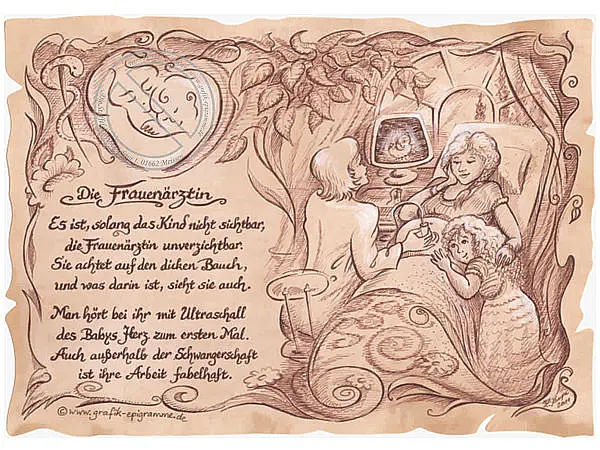 01662 Meissen
Die Frauenärztin
Es ist, solang das Kind nicht sichtbar,
die Frauenärztin unverzichtbar.
Sie achtet auf den dicken Bauch,
und was darin ist, sieht sie auch.
Man hört bei ihr mit Ultraschall
des Babys Herz zum ersten Mal.
Auch außerhalb der Schwangerschaft
ist ihre Arbeit fabelhaft.
©www.grafik-epigramme.de